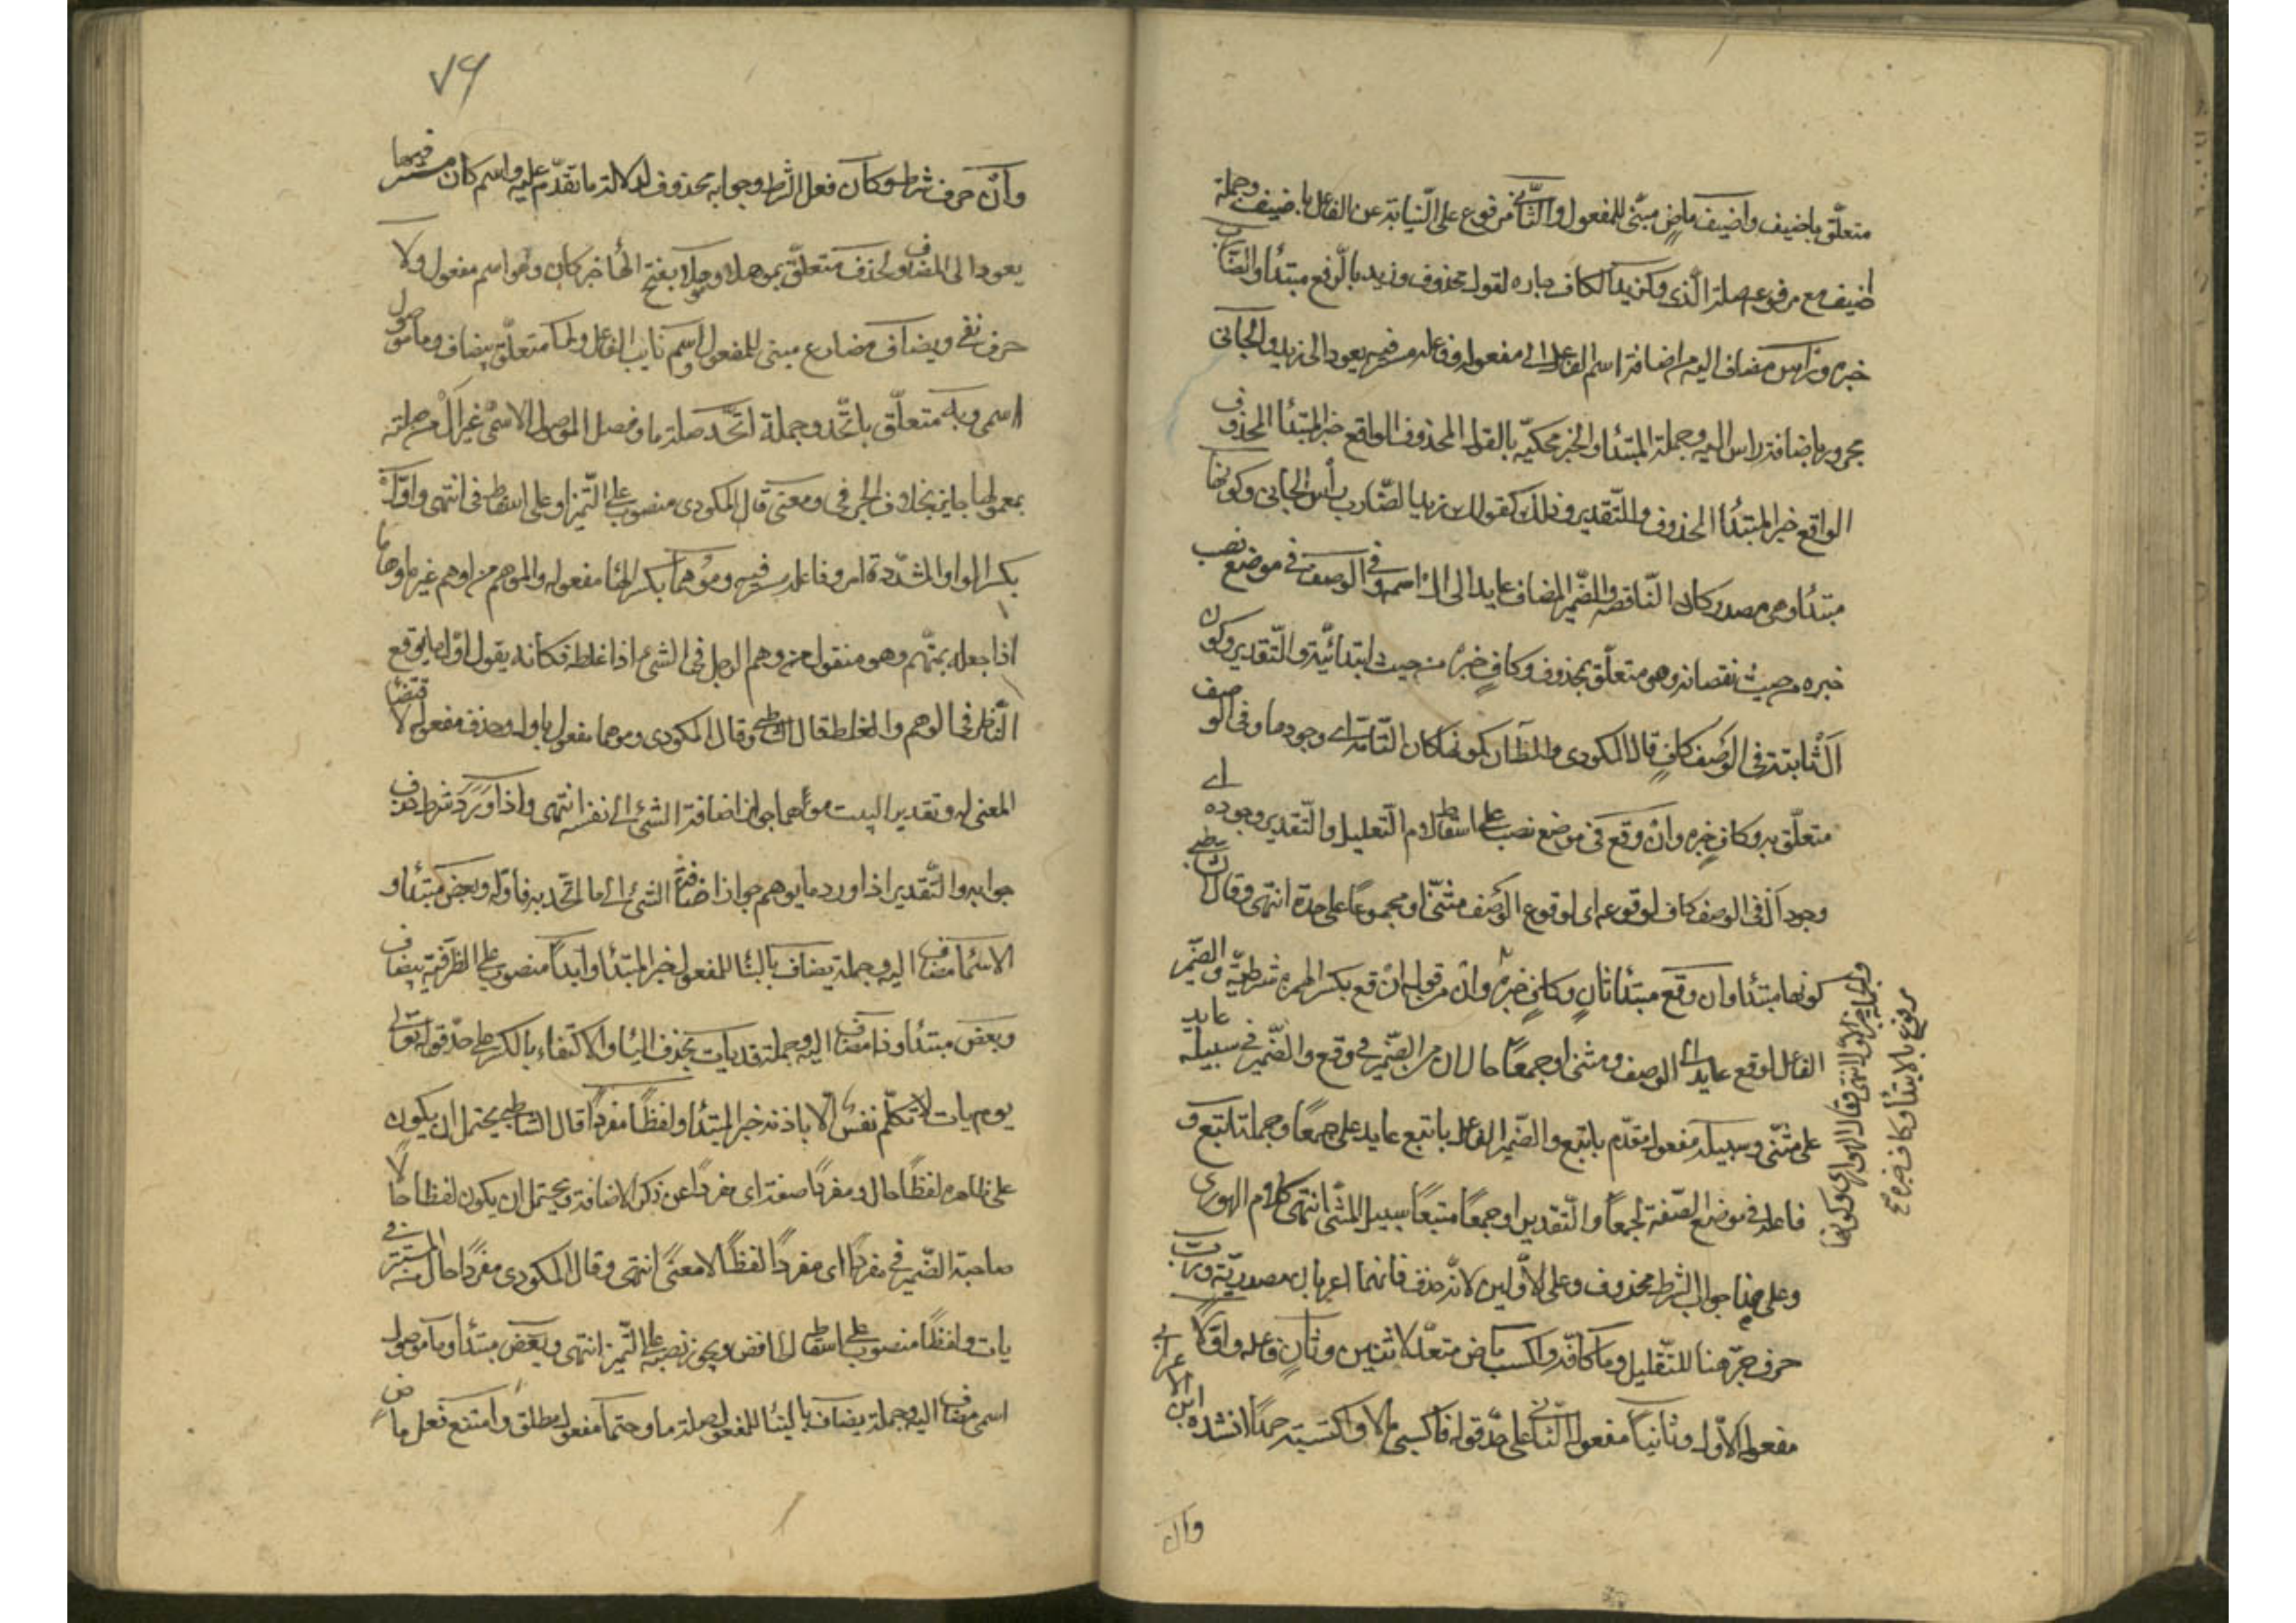 متعلّق باضيف واضيف ماضٍ مبنّى للمفعول والثّانى مرفوع على النّيابة عن الفاعل باضيف وجملة
اضيف مع مرفوعه صلة الّذى وكزيد الكاف جاره لقول محذوف وزيد بالرّفع مبتدأ والضّارب
خبره ورأس مضاف اليه من اضافة اسم الفاعل الى مفعوله وفاعله مستتر فيه يعود الى زيد والجانى
مجرور باضافة راس اليه وجملة المبتدأ والخبر محكيّه بالقول المحذوف الواقع خبر المبتدأ المحذوف
الواقع خبر المبتدأ المحذوف والتّقدير وذلك كقولك زيد الضّارب رأس الجانى وكونها
مبتدأ وهى مصدر كان النّاقصه والضّمير المضاف عايد الى ال اسمه وفى الوصف فى موضع نصب
خبره من حيث نقصانه وهو متعلّق بمحذوف وكافٍ خبره من حيث ابتدائيّته والتّقدير وكون
ال ثابتة فى الوصف كافٍ قال المكودى والظّان كونها كان التّامّة اى وجودها وفى الوصف
متعلّق به وكافٍ خبره وان وقع فى موضع نصب على اسقاط لام التّعليل والتّقدير وجوده اى
وجود ال فى الوصف كاف لوقوعه اى لوقوع الوصف مثنّى او مجموعاً على حدة انتهى وقال الشاطبى
كونها مبتدأ وان وقع مبتدأ ثانٍ وكافٍ خبره وان من قوله ان وقع بكسر الهمزه شرطيّة والضّمير
الفاعل بوقع عايد الى الوصف ومثنى او جمعاً حالان من الضّمير فى وقع والضّمير فى سبيله عايد
على مثنّى وسبيله مفعول مقدّم باتبع والضّمير الفاعل باتبع عايد على جمعاً وجملة اتبع و
فاعله فى موضع الصّفة لجمعاً والتّقدير او جمعاً متبعاً سبيل المثنّى انتهى كلام الهوارى
وعلى هذا جواب الشرط محذوف وعلى الاوّلين لانّه حذف فانهما اعربا ان مصدريّة وربّ
حرف جرّ هنا للتّقليل وما كافّه واكسب ماض متعدّ لاثنين وثانٍ فاعله واوّلا
مفعوله الاوّل وثانياً مفعوله الثّانى على حدّ قوله فاكسبنى مالا واكتسبته حمداً انشده ابن الاعرابى
والجملة خبر الاوّل انتهى وقال الهوارى وكونها
مرفوع بالابتدأ وكاف خبره صح
وان
٧٩
وان حرف شرط وكان فعل الشّرط وجوابه محذوف لدلالة ما تقدّم عليه واسم كان مستتر فيها
يعود الى المضاف ولحذف متعلّق بموهلا وموهلا بفتح الهأ خبر كان وهو اسم مفعول ولا
حرف نفى ويضاف مضارع مبنى للمفعول واسم نايب الفاعل ولما متعلّق بيضاف وما موصول
اسمى وبه متعلّق باتّحد وجملة اتّحد صلة ما وفصل الموصول الاسمىّ غير ال من صلته
بمعمولها جايز بخلاف الحرفى ومعنى قال المكودى منصوب على التّميز او على اسقاط فى انتهى واوّل
بكسر الواو المشدّدة امر وفاعله مستتر فيه وموهما بكسر الهأ مفعوله والموهم من اوهم غيره ايهاما
اذا جعله يتهم وهو منقول من وهم الرجل فى الشىء اذا غلط فكأنه يقول اوّل ما يوقع
النّاظر فى الوهم والغلط قال الشاطبى وقال المكودى وموهما مفعول باول وحذف مفعوله لاقتضأ
المعنى له وتقدير البيت موهما جواز اضافة الشىء الى نفسه انتهى واذا ورد شرط حذف
جوابه والتّقدير اذا ورد ما يوهم جواز اضافة الشىء الى ما اتّحد به فاوّله وبعض مبتدأ و
الاسمأ مضاف اليه وجملة يضاف بالبنأ للمفعول خبر المبتدأ وابداً منصوب على الظرفيّة بيضاف
وبعض مبتدأ وذا مضاف اليه وجملة قد يات بحذف اليأ والاكتفاء بالكسرة على حدّ قوله تعالى
يوم يات لا تكلّم نفس الّا باذنه خبر المبتدأ ولفظاً مفرداً قال الشاطبى يحتمل ان يكون
على ظاهره لفظاً حال ومفرداً صفته اى مفرداً عن ذكر الاضافة ويحتمل ان يكون لفظاً حالاً
صاحبة الضّمير فى مفرداً اى مفرداً لفظاً لا معنىً انتهى وقال المكودى مفرداً حال من المستتر فى
يات ولفظاً منصوب على اسقاط الخافض ويجوز نصبه على التّميز انتهى وبعض مبتدأ وما موصول
اسمى مضاف اليه وجملة يضاف بالبنأ للمفعول صلة ما وحتماً مفعول مطلق وامتنع فعل ماض